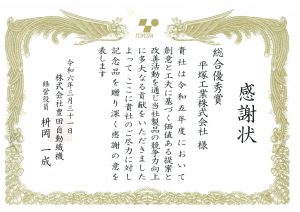 TOYOTA
感謝状
総合優秀賞
平塚工業株式会社 様
貴社は令和五年度において
創意と工夫に基づく価値ある提案と
改善活動を通じ当社製品の競争力向上
に多大なる貢献をいただきました
よってここに貴社のご尽力に対し
記念品を贈り深く感謝の意を
表します
令和六年三月二十一日
株式会社豊田自動織機
経営役員 枡岡 一成